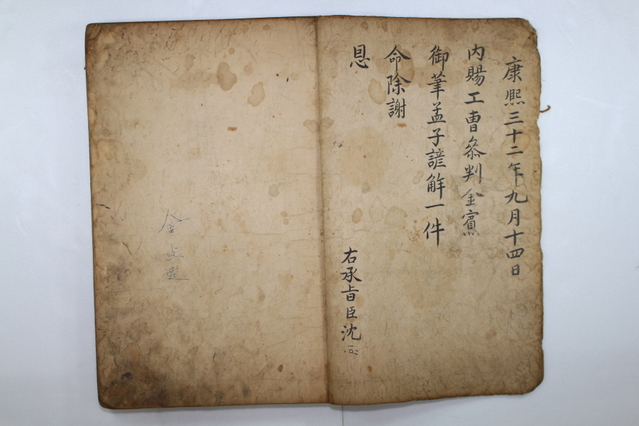 康熙三十二年九月十四日
內賜工曹叅判金賓
御筆孟子諺觧一件
命除謝
恩
右承旨臣沈
金